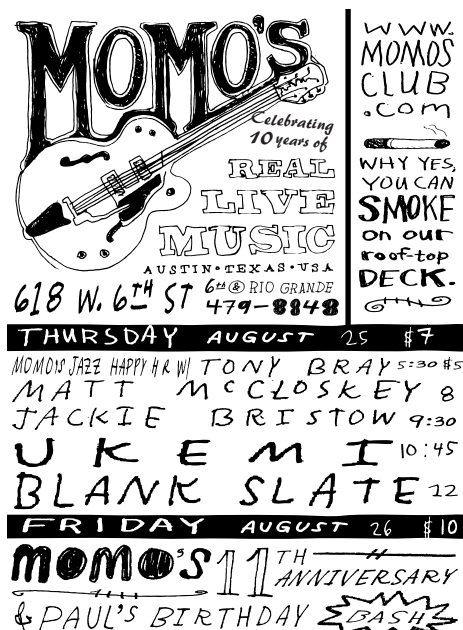 MOMO'S
Celebrating
10 years of
REAL
LIVE
MUSIC
AUSTIN•TEXAS•USA
618 W. 6TH ST 6th @ RIO GRANDE
479-8848
WWW.
MOMOS
CLUB
.COM
WHY YES,
YOU CAN
SMOKE
on our
roof-top
DECK.
THURSDAY AUGUST 25 $7
MOMO'S JAZZ HAPPY HR W/ TONY BRAY 5:30 $5
MATT McCLOSKEY 8
JACKIE BRISTOW 9:30
UKEMI 10:45
BLANK SLATE 12
FRIDAY AUGUST 26 $10
MOMO'S 11TH ANNIVERSARY
& PAUL'S BIRTHDAY BASH